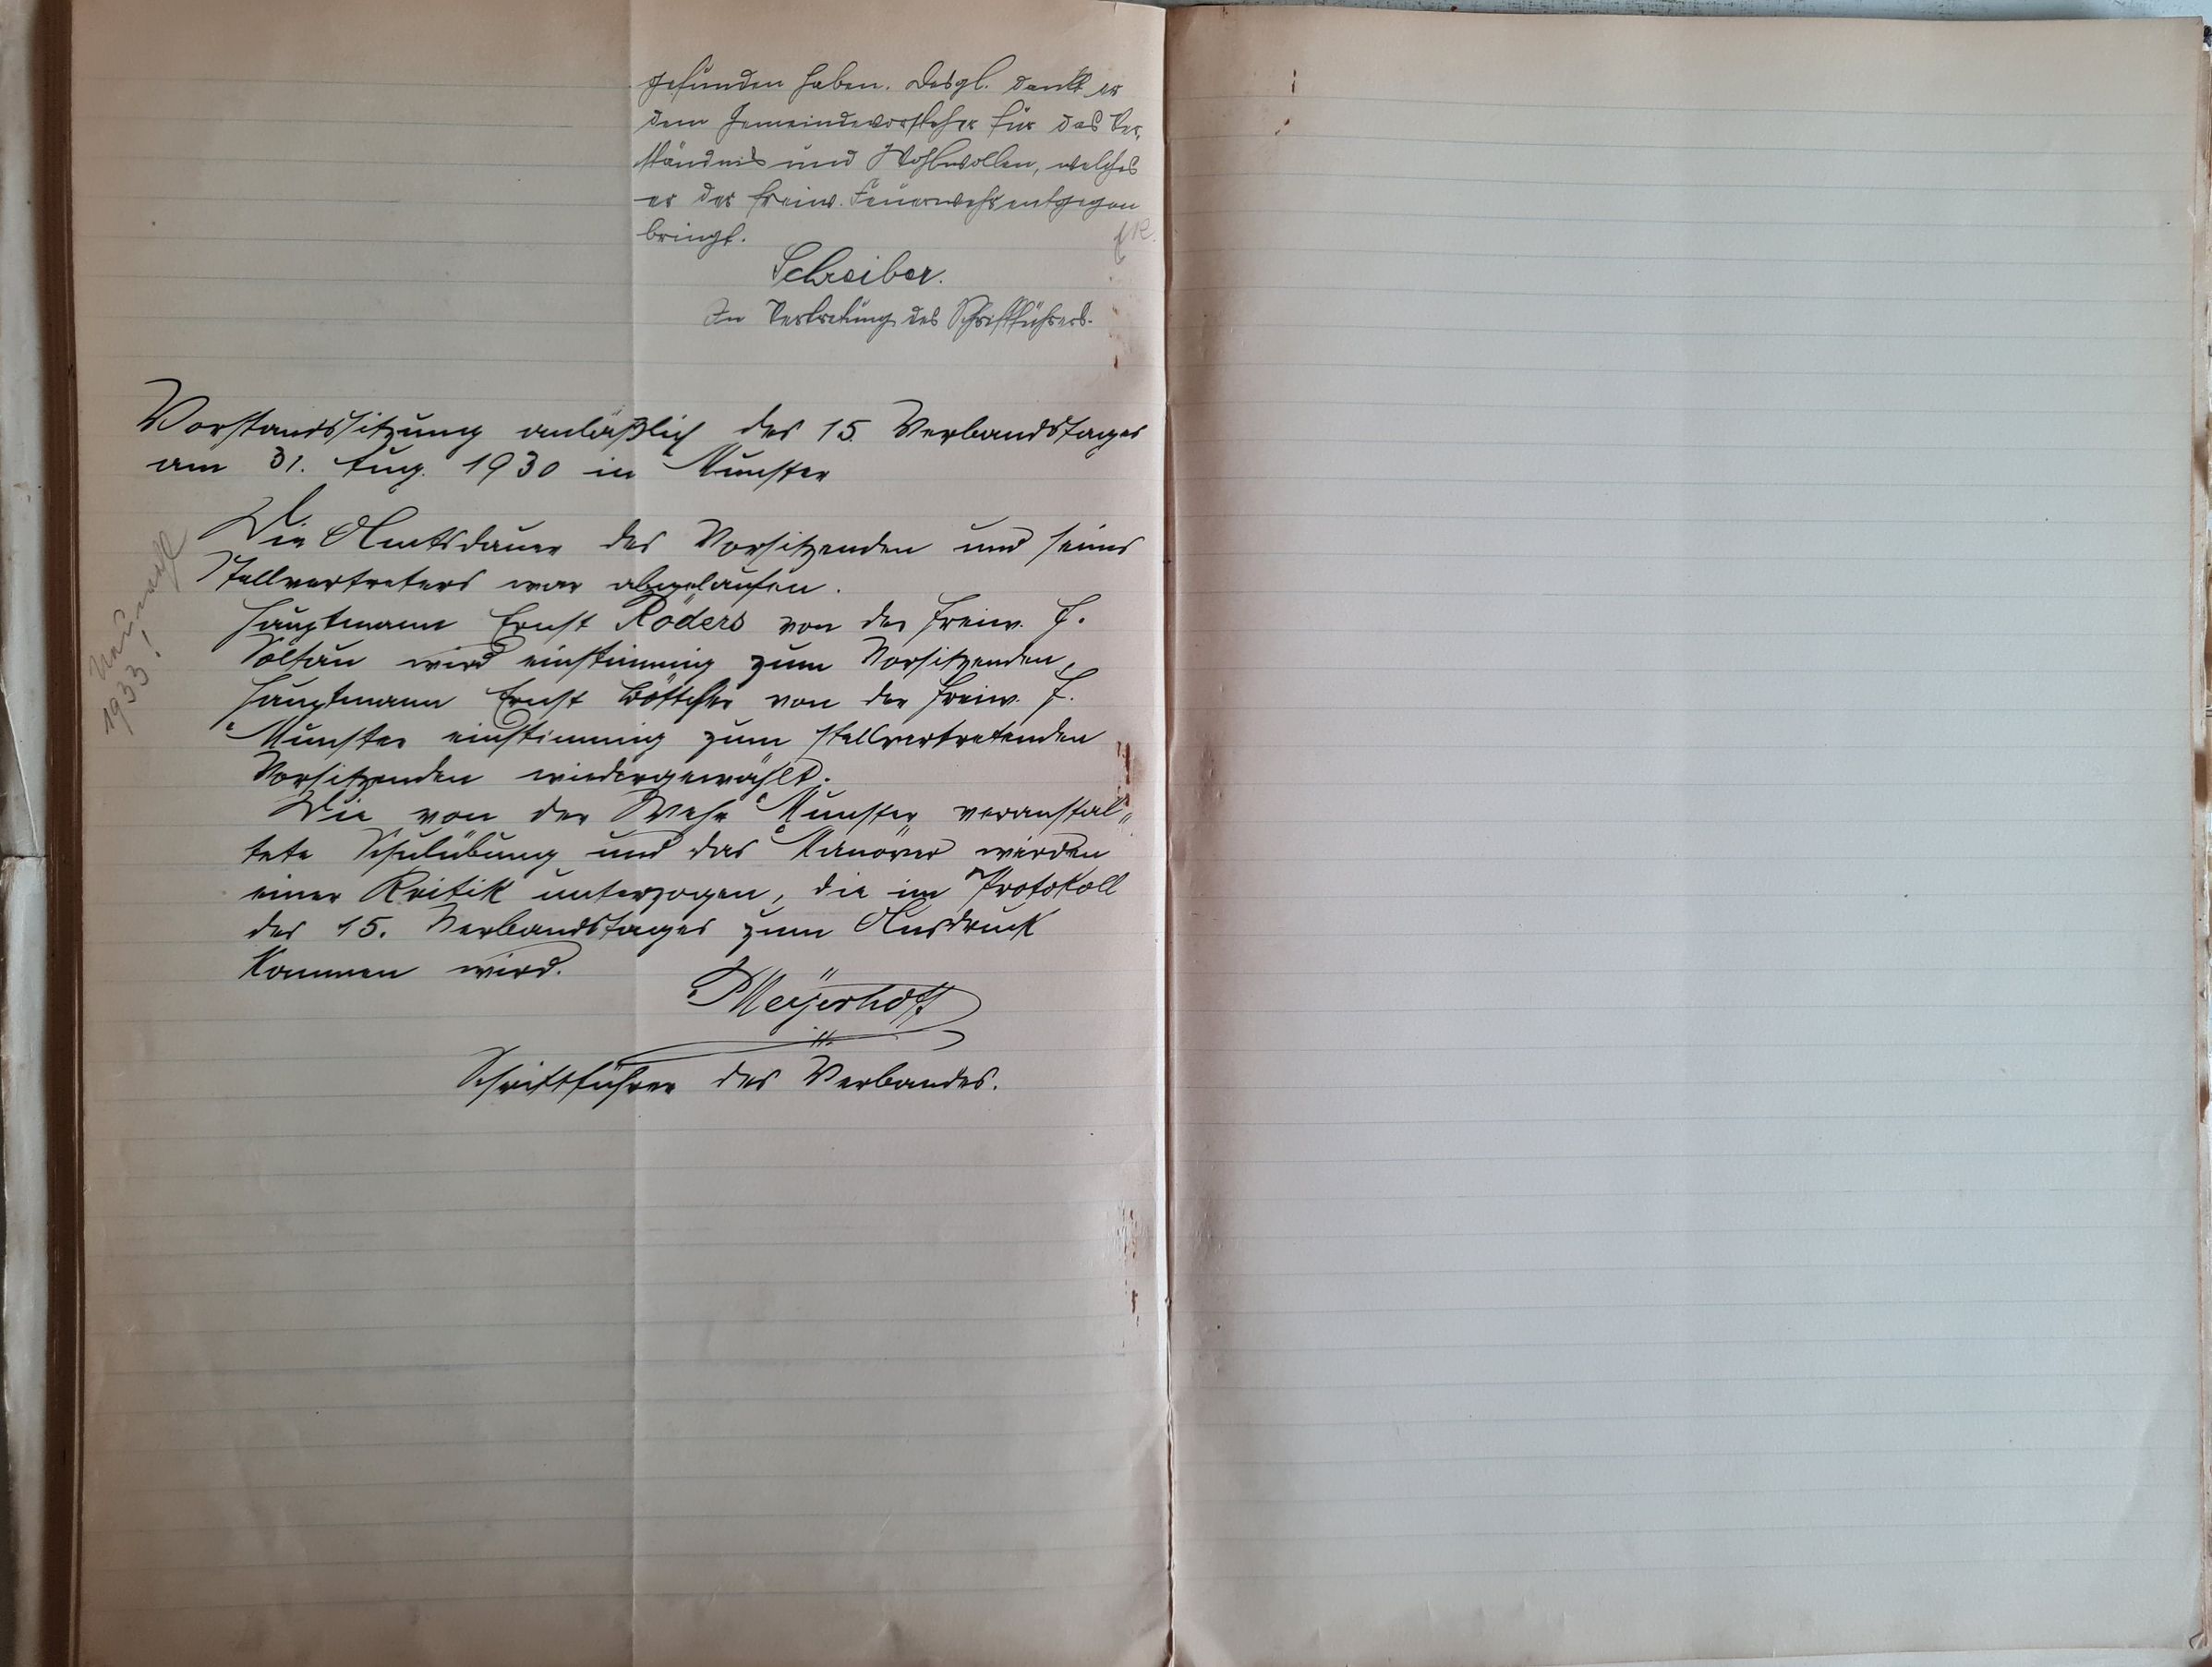 gefunden haben. Desgl. dankt er
dem Gemeindevorsteher für das Ver-
ständnis und Wohlwollen, welches
er der freiw. Feuerwehr entgegen
bringt.
Schreiber.
In Vertretung des Schriftführers.
Vorstandssitzung anläßlich des 15. Verbandstages
am 31. Aug. 1930 in Munster
Die Amtsdauer des Vorsitzenden und seines
Stellvertreters war abgelaufen.
Hauptmann Ernst Röders von der Freiw. F.
Soltau wird einstimmig zum Vorsitzenden,
Hauptmann Ernst Böttcher von der Freiw. F.
Munster einstimmig zum stellvertretenden
Vorsitzenden wiedergewählt.
Die von der Wehr Munster veranstal-
tete Schulübung und das Manöver werden
einer Kritik unterzogen, die im Protokoll
des 15. Verbandstages zum Ausdruck
kommen wird.
Meyerhoff
Schriftführer des Verbandes.
Neuwahl
1933!